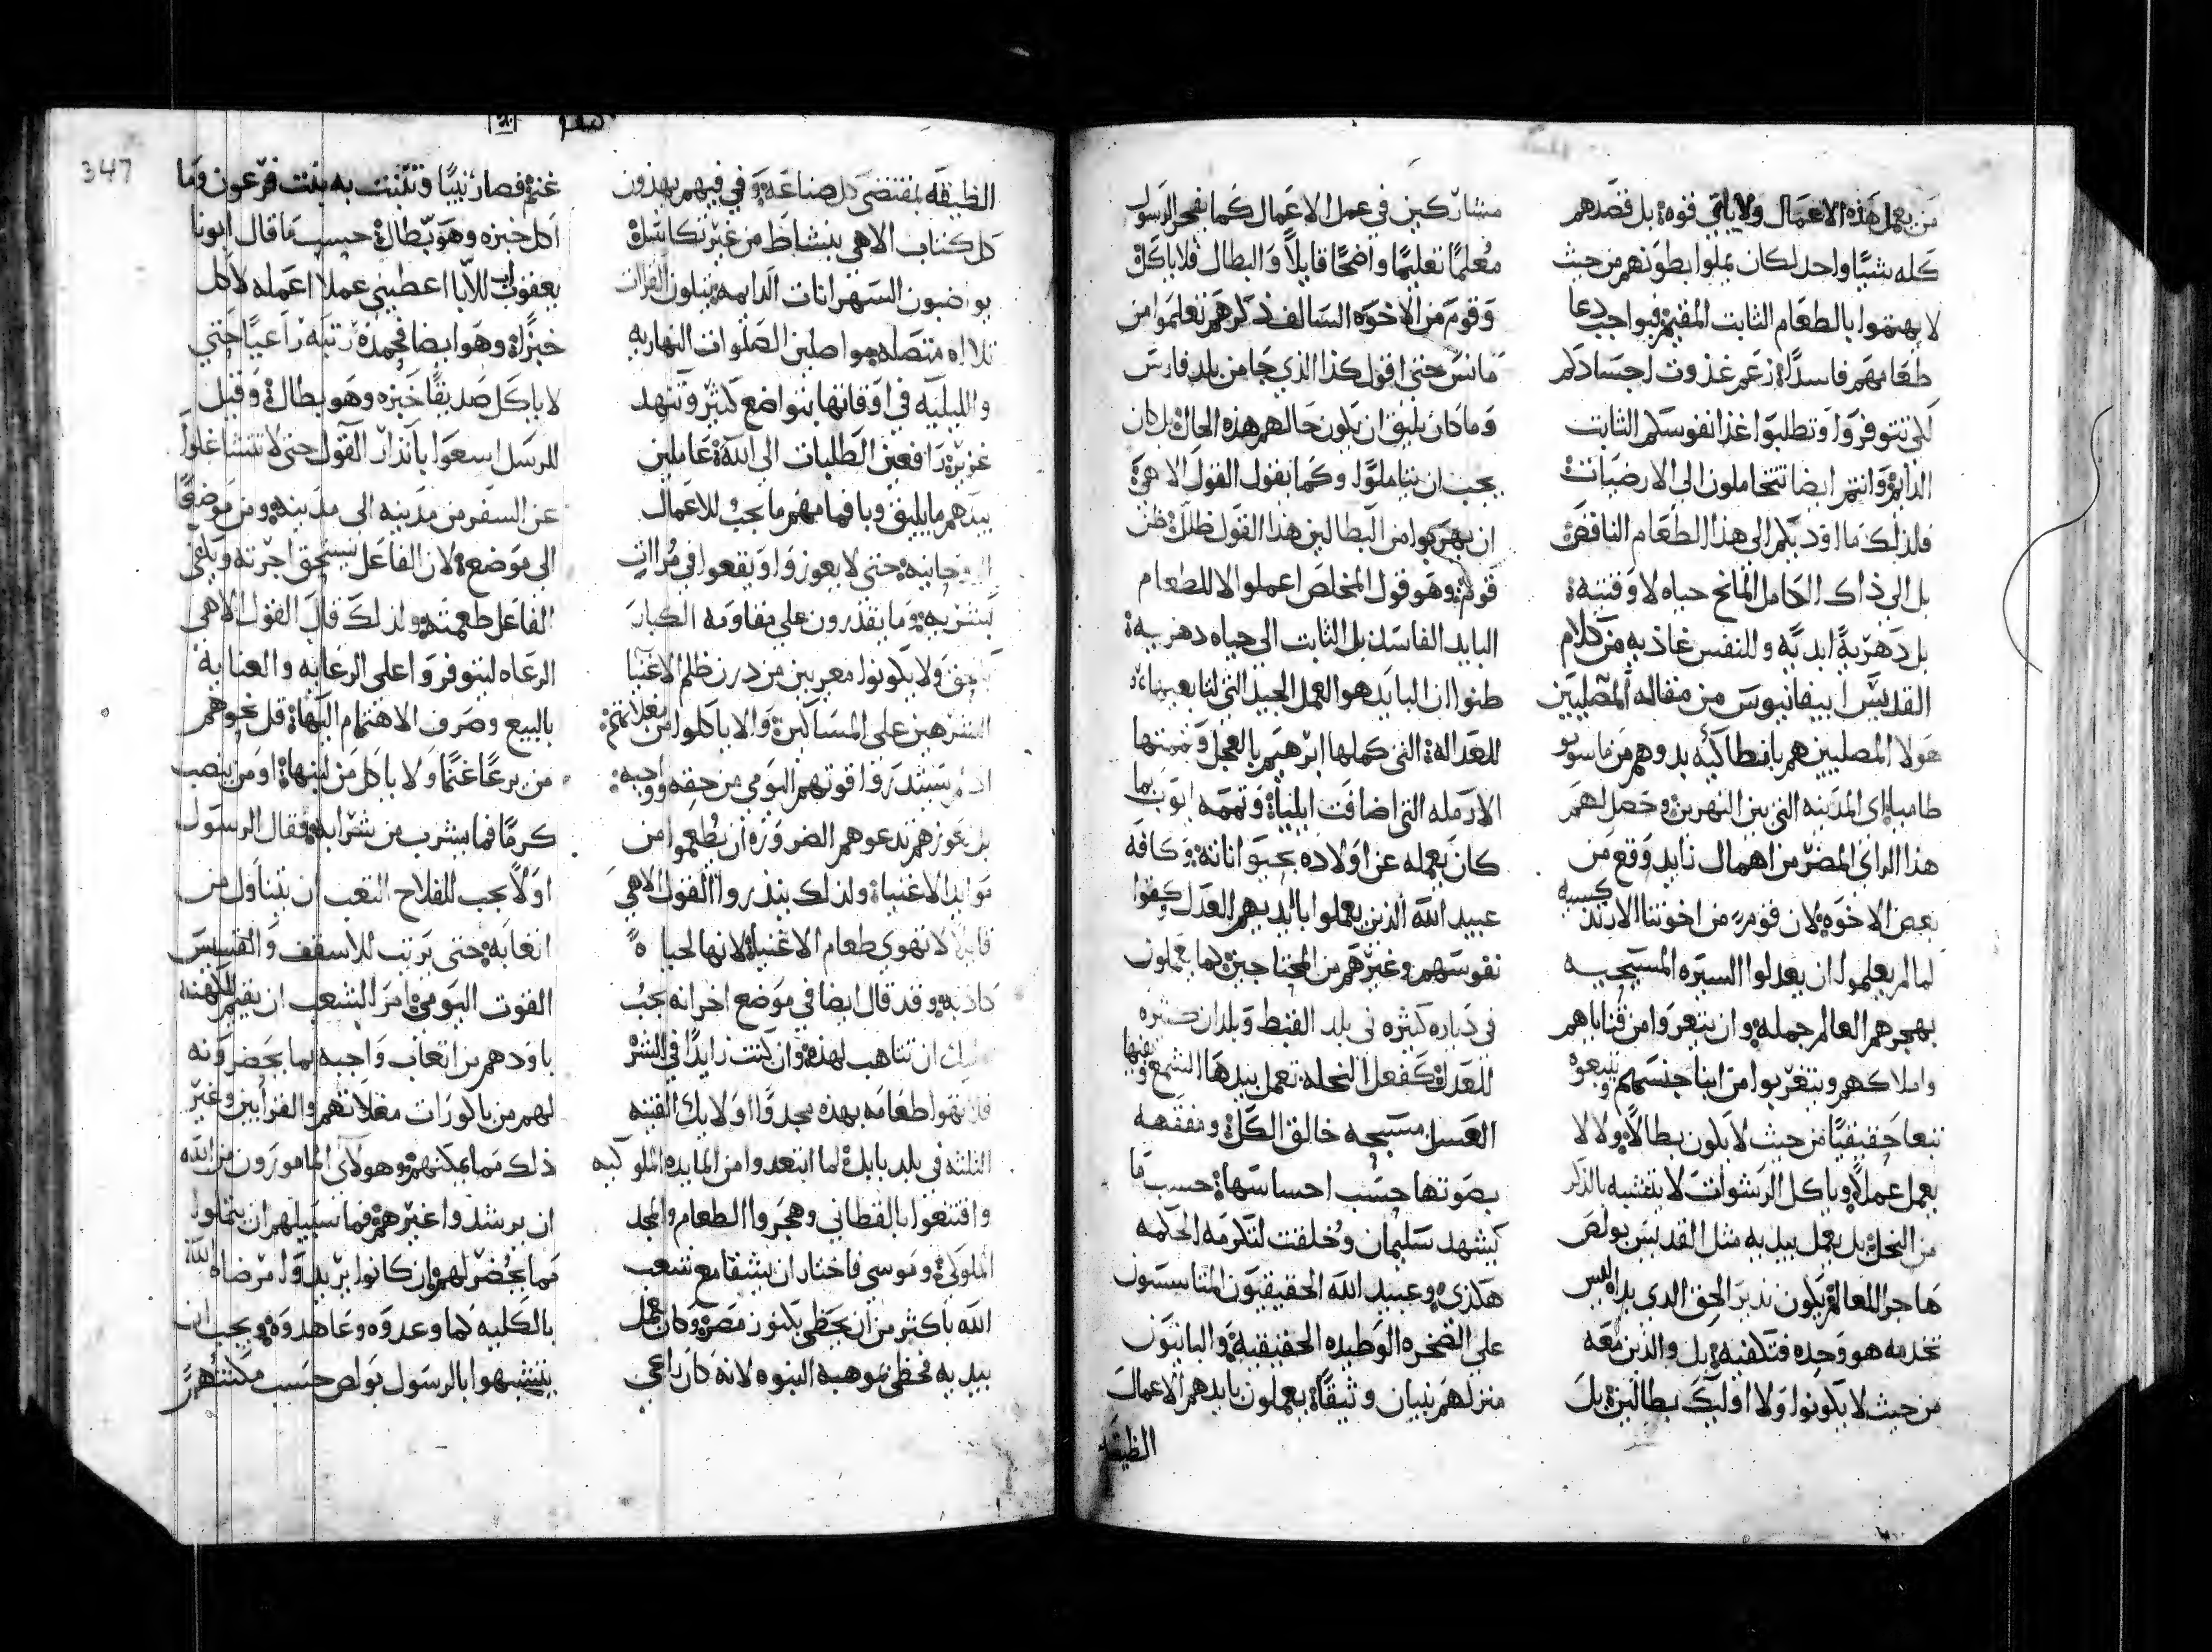 من يعمل هذه الاعمال ولا ياتي قوه بل قصدهم
كله شيئا واحد لكان يملوا بطونهم من حيث
لا يهتموا بالطعام الثابت المقيم فبواجب دعا
طعامهم فاسدا زعم غذوت اجسادكم
لكي تتوفروا وتطلبوا غذا نفوسكم الثابت
الدايم وانتم ايضا تتحاملون الى الارضيات
فلذلك ما اود بكم الى هذا الطعام الناقص
بل الى ذاك الكامل المانح حياه لا وقتيه
بل دهرية ابديه وللنفس غاذيه من كلام
القديس ابيفانيوس من مقاله المصليين
هولا المصليين هم بانطاكيه بدوهم من ماسوبو
طاميا اى المدينه التي بين النهرين وحصل لهم
هذا الراي المضر من اهمال زايد وقع من
بعض الاخوه لان قوم من اخوتنا الاردنكسيه
لما لم يعلموا ان يعدلوا السيره المسيحيه
بهجرهم العالم جمله وان يتعروا من قناياهم
واملاكهم ويتغربوا من ابنا جنسهم ويتبعوه
تبعا حقيقيا من حيث لا يكون بطالا ولا لا
يعمل عملا وياكل الرشوات لا يتشبه بالذكر
من النحل بل يعمل بيديه مثل القديس بولص
هاجر العالم يكون نذير الحق الدي يداه ليس
تخدمه هو وحده فتكفيه بل والذين معه
من حيث لا يكونوا ولا اوليك بطالين بل
مشاركين في عمل الاعمال كما يفخر الرسول
معلما تعليما واضحا قايلا والبطال فلا ياكل
وقوم من الاخوه السالف ذكرهم تعلموا من
مانس حتى اقول كذا الذي جا من بلد فارس
وما كان يليق ان يكون حالهم هذه الحال بل كان
يجب ان يتاملوا وكما يقول القول الاهي
ان يهربوا من البطالين هذا القول ظلل ظن
قوم وهو قول المخلص اعملوا لا للطعام
البايد الفاسد بل الثابت الى حياه دهريه
ظنوا ان البايد هو العمل الجيد التي لنا بعينها
للعداله التي كملها ابرهيم بالعجل وتممتها
الارمله التي اضافت ايليا وتممه ايوب بما
كان يعمله عن اولاده بحيوانانه وكافه
عبيد الله الذين يعملوا بايديهم العدل كفوا
نفوسهم وغيرهم من المحتاجين كما يعملون
في دياره كثيره في بلد القبط وبلدان كثيره
للعدل كفعل النحله تعمل بيدها الشمع وبفيها
العسل مسبحه خالق الكل ومفقهه
بصوتها حسب احساسها حسب ما
يشهد سليمان وخلقت لتكرمه الحكمه
هكذي وعبيد الله الحقيقيون المتاسسون
على الصخره الوطيده الحقيقية والبانيون
منزلهم بنيان وثيقا يعملون بايديهم الاعمال
الظيقه
347
الظيقه بمقتضى كل صناعه وفي فيهم يهذون
كل كتاب الاهي بنشاط من غير تكاسل
يواضبون السهرانات الدايمه يتلون القرات
تلااه متصله مواصلين الصلوات النهاريه
والليليه في اوقاتها بتواضع كثير وتنهد
غزير رافعين الطلبات الى الله عاملين
بيدهم ما يليق وبافمامهم ما يجب للاعمال
الروحانيه حتى لا يعوزوا او يقعوا في مراات
بشريه وما يقدرون على مقاومه الكبار
بحق ولا يكونوا معربين من درن ظلم الاغنيا
الشرهين على المساكين والا ياكلوا من بعلاتهم
اذ لم يستدروا قوتهم اليومي من حقه ووجبه
بل عوزهم تدعوهم الضروره ان يطعموا من
موايد الاغنيا ولذلك ينذروا القول الاهي
قايلا لا تهوى طعام الاغنيا لانها لحياه
كاذبه وقد قال ايضا في موضع اخر انه يجب
عليك ان تتاهب لهذه وان كنت زايدا في الشر
فلا تهوا طعامه بهذه مجدوا اولايك الفتيه
الثلثه في بلد بابل لما ابتعدوا من المايده الملوكيه
واقتنعوا بالقطاني وهجروا الطعام والمجد
الملوكي وموسى فاختار ان يشقا مع شعب
الله باكثر من ان يحظى بكنوز مصر وكان عمل
بيديه فحظي بموهبة النبوه لانه كان راعي
غنم فصار نبيا وتبنت به بنت فرعون وما
اكل خبزه وهو بطال حسب ما قال ابونا
يعقوب للابان اعطيني عملا اعمله لاكل
خبزا وهو ايضا فحمده رتبه راعيا حتى
لا ياكل صديقا خبزه وهو بطال وقيل
للرسل اسعوا بانذار القول حتى لا تتشاغلوا
عن السفر من مدينه الى مدينه ومن موضع
الى موضع لان الفاعل يستحق اجرته ويكفي
الفاعل طعمته ولذلك قال القول الاهي
الرعاه ليتوفروا على الرعايه والعنايه
بالبيع وصرف الاهتمام اليها قل نحوهم
من يرعا غنما ولا ياكل من لبنها او من ينصب
كرما فما يشرب من شرابه وفقال الرسول
اولا يجب للفلاح التعب ان يتناول من
اتعابه حتى يرتب للاسقف والقسيس
القوت اليومي امر الشعب ان يقيم للكهنه
باودهم من اتعاب واجبه بما يحضرونه
لهم من باكورات مغلاتهم والقرابين وغير
ذلك مما يمكنهم وهولاى المامورون من الله
ان يرشدوا غيرهم فما سبيلهم ان يتملوا
مما يحضر لهم ان كانوا يريدوا مرضاه الله
بالكليه كما وعدوه وعاهدوه ويجب ان
يتشبهوا بالرسول بولص حسب مكنتهم